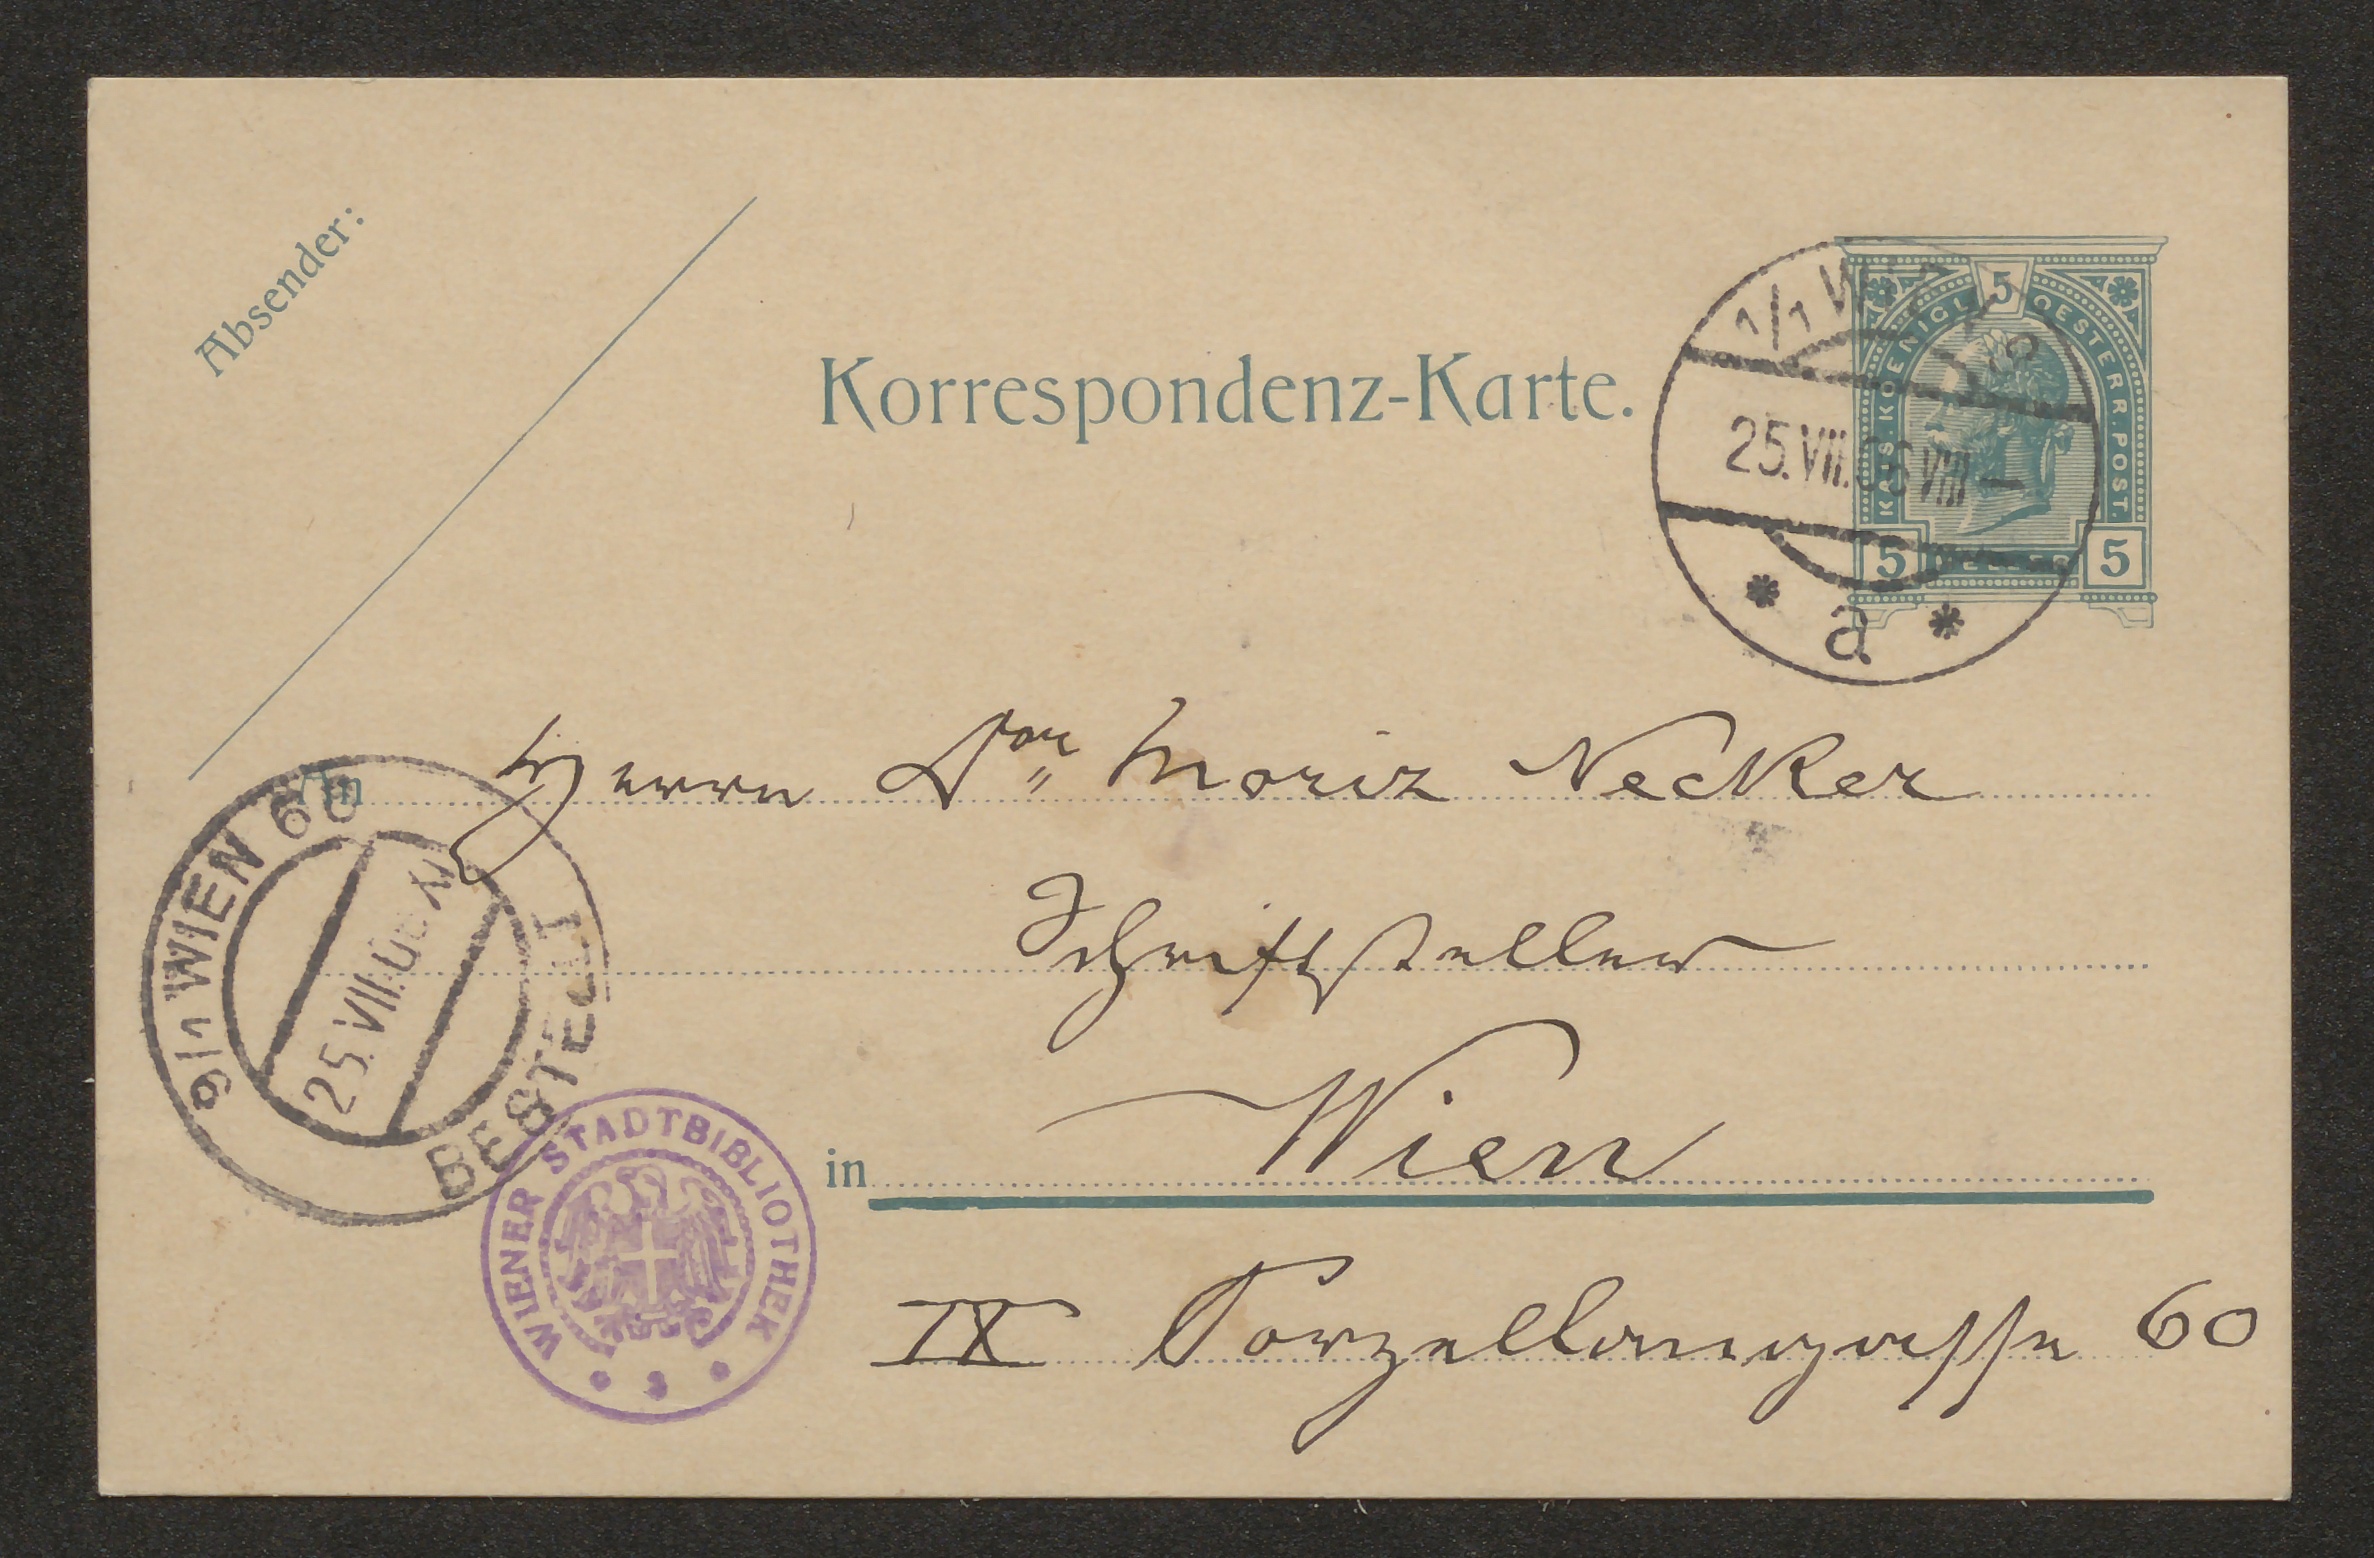 Absender:
Korrespondenz-Karte.
KAIS. KOENIGL. 5 OESTERR. POST.
5 HELLER 5
1/1 WIEN
25.VII.06 VIII –
* a *
An Herrn Dor Moriz Necker
Schriftsteller
in Wien
IX Porzellangasse 60
9/1 WIEN 60
25.VII.06
BESTELLT
WIENER STADTBIBLIOTHEK